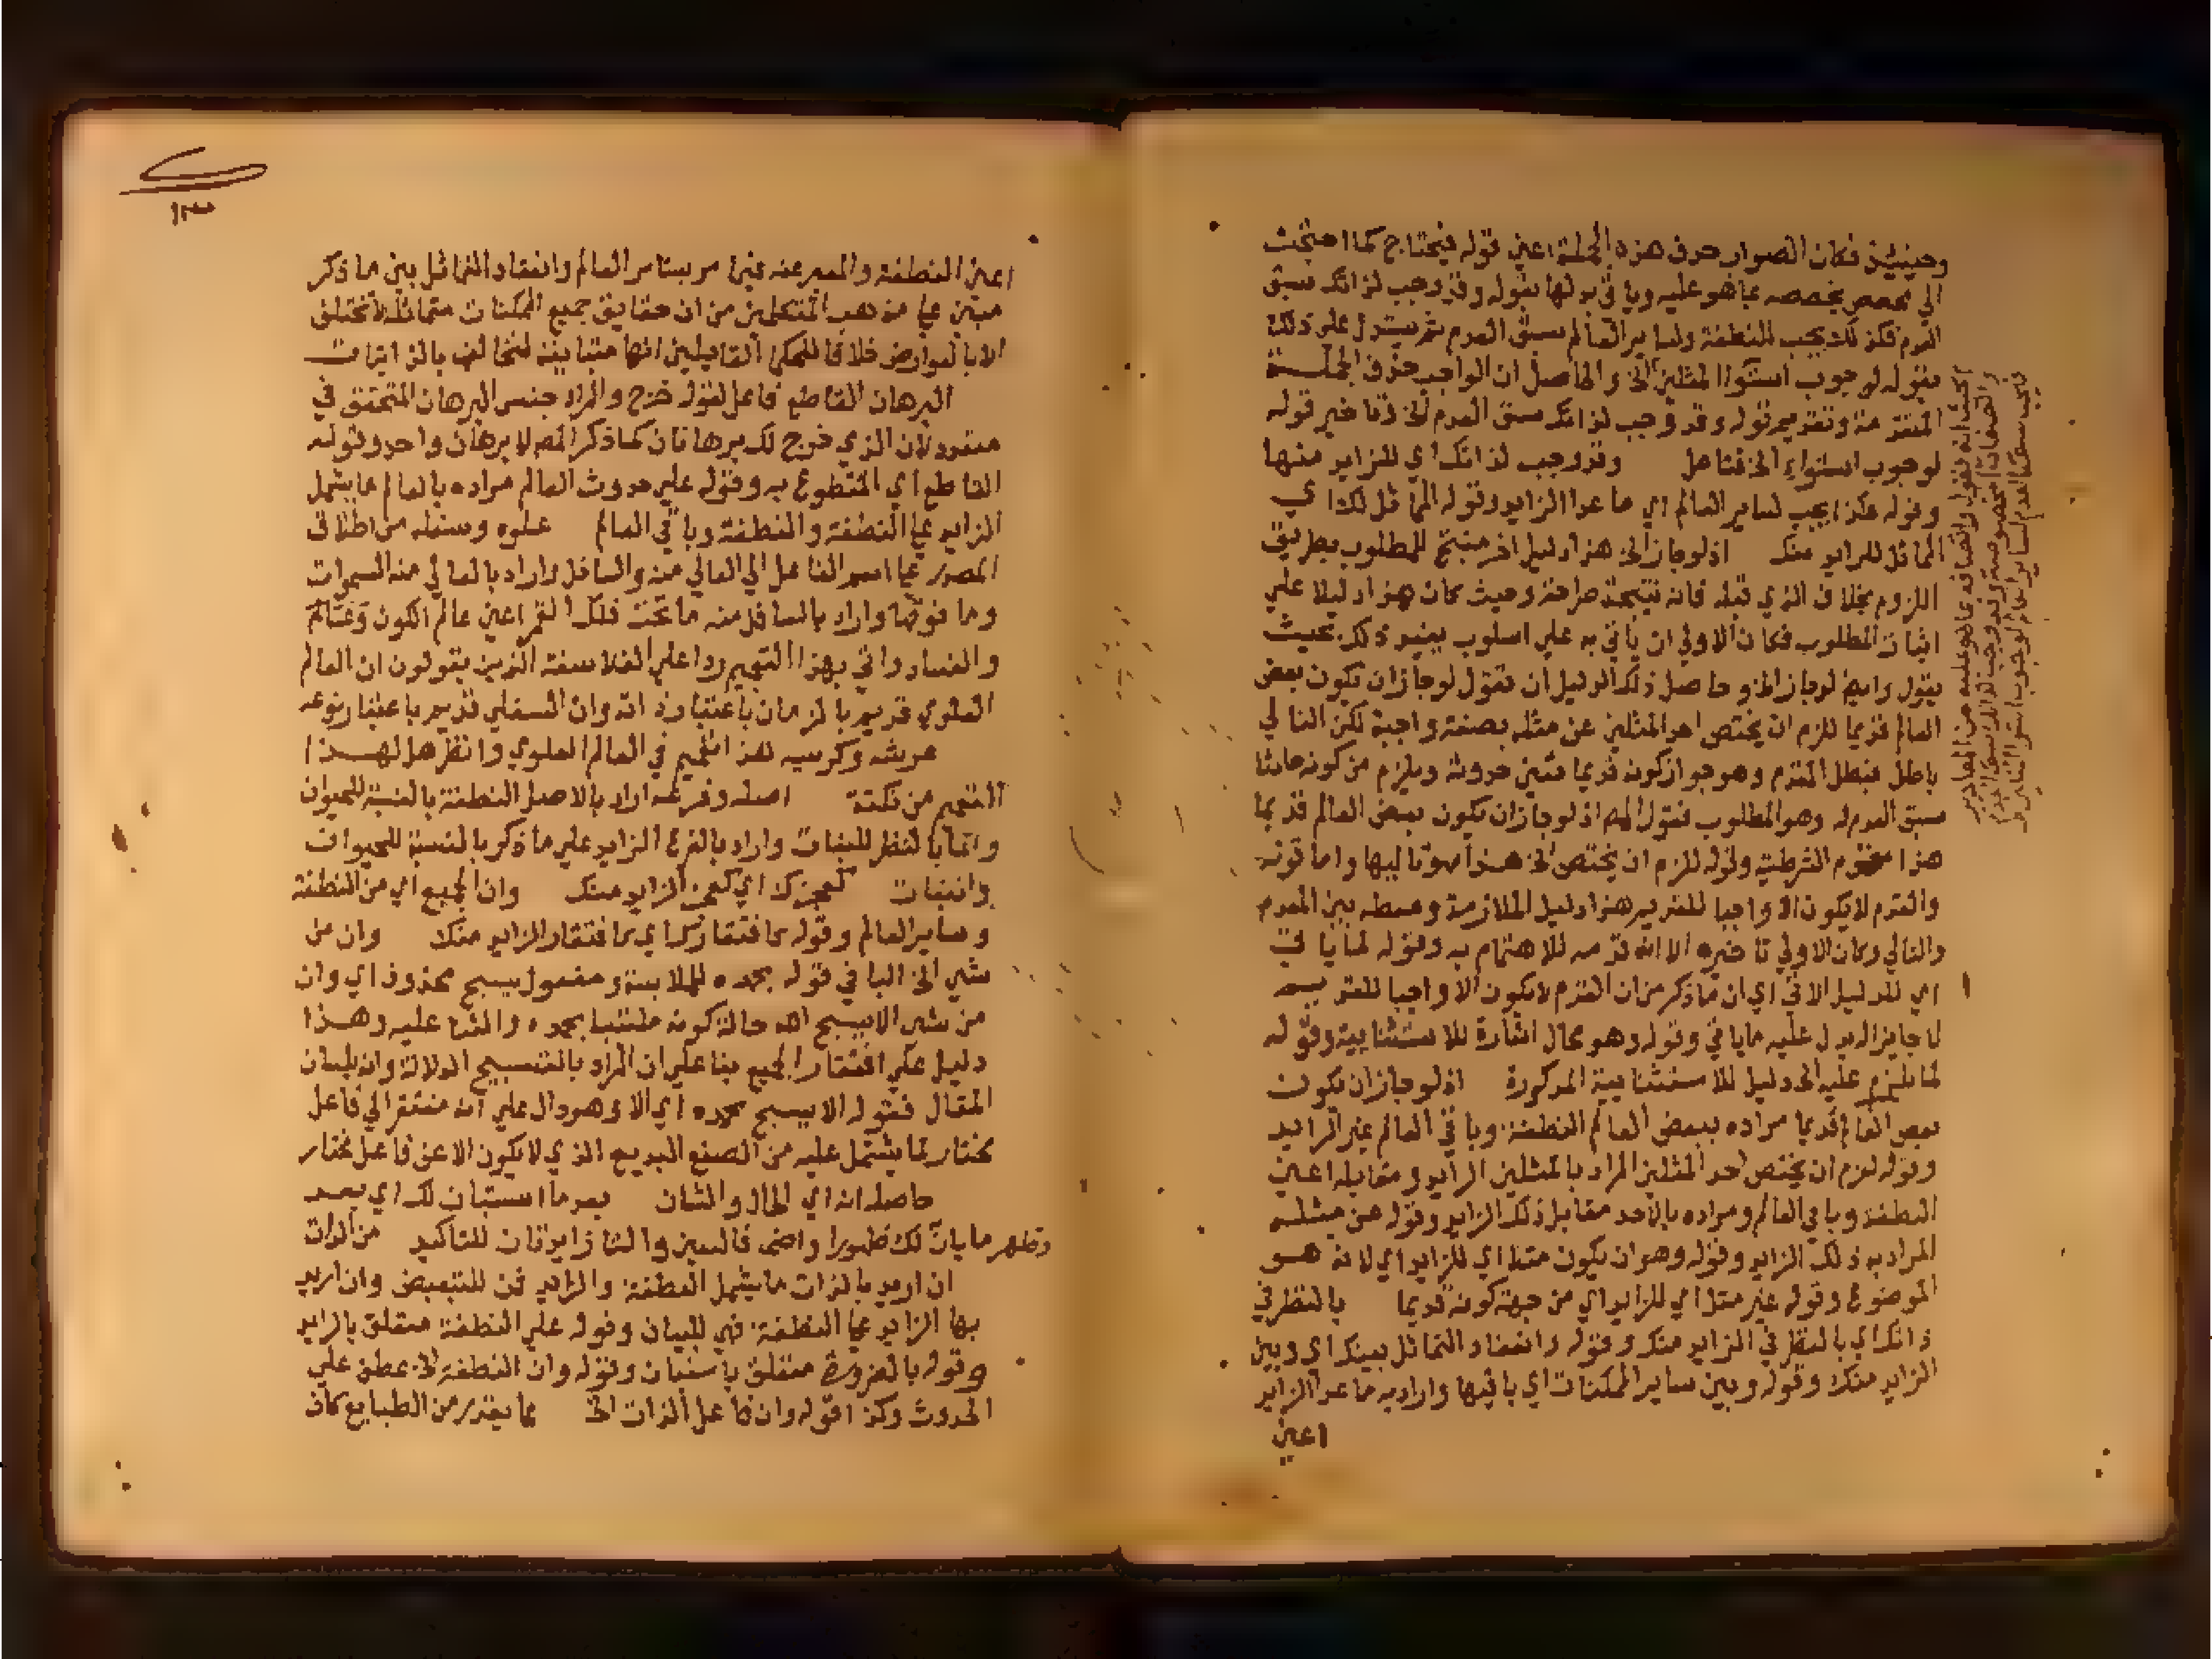 وحينيذ فكان الصواب حذف هذه الجملة اعني قوله فيحتاج كما احتجت
الي مخصص يخصصه بما هو عليه وياتي بدلها بقوله وقد وجب لذاتك سبق
العدم فكذلك يجب للنطفة ولساير العالم سبق العدم ثم يستدل علي ذلك
بقوله لوجوب استوا المثلين الخ والحاصل ان الواجب حذف الجملــة
المتقدمة وتقديم قوله وقد وجب لذاتك سبق العدم الخ وتاخير قوله
لوجوب استواء الخ فتامل وقد وجب لذاتك اي للزايد منها
وقوله فكذا يجب لساير العالم اي ما عدا الزايد وقوله المماثل لك اي
المماثل للزايد منك اذ لو جاز الخ هذا دليل اخر منتج للمطلوب بطريق
اللزوم بخلاف الذي قبله فانه نتيجته صراحة وحيث كان هذا دليلا علي
اثبات المطلوب فكان الاولي ان ياتي به علي اسلوب يفيد ذلك بحيث
يقول وايضا لو جاز الخ وحاصل ذلك الدليل ان تقول لو جاز ان يكون بعض
العالم قديما للزم ان يختص احد المثلين عن مثله بصفة واجبة لكن التالي
باطل فبطل المقدم وهو جواز كونه قديما فتعين حدوثه ويلزم من كونه حادثا
سبق العدم له وهو المطلوب فقول المص اذ لو جاز ان يكون بعض العالم قديما
هذا مقدم الشرطية وقوله للزم ان يختص الخ هذا هو تاليها واما قوله
والقدم لا يكون الا واجبا للقديم هذا دليل الملازمة وسطه بين المقدم
والتالي وكان الاولي تاخيره الا انه قدمه للاهتمام به وقوله لما ياتي
اي للدليل الاتي اي ان ما ذكر من ان القدم لا يكون الا واجبا للقديــم
لا جايزا له دل عليه ما ياتي وقوله وهو محال اشارة للاستثنايية وقوله
لما يلزم عليه الخ دليل للاستثنايية المذكورة اذ لو جاز ان يكون
بعض العالم قديما مراده ببعض العالم النطفة وباقي العالم غير الزايد
وقوله لزم ان يختص احد المثلين المراد بالمثلين الزايد ومقابله اعني
النطفة وباقي العالم ومراده بالاحد مقابل ذلك الزايد وقوله عن مثلــه
المراد به ذلك الزايد وقوله وهو ان يكون مثلا اي للزايد اي لانه هــو
الموضوع وقوله غير مثل اي للزايد اي من جهة كونه قديما بالنظر في
ذاتك اي بالنظر في الزايد منك وقوله وانعقاد التماثل بينك اي وبين
الزايد منك وقوله وبين ساير الممكنات اي باقيها واراد به ما عدا الزايد
اعني
١٣٠
اعني النطفة والمعبر عنه فيما مر بساير العالم وانعقاد التماثل بين ما ذكر
مبني علي مذهب المتكلمين من ان حقايق جميع الممكنات متماثلة لا تختلف
الا بالعوارض خلافا للحكما القايلين انها متباينة لتخالف بالذاتيات
البرهان القاطع فاعل لقوله خرج والمراد جنس البرهان المتحقق في
متعدد لان الذي خرج لك برهانان كما ذكر المص لا برهان واحد وقوله
القاطع اي المقطوع به وقوله علي حدوث العالم مراده بالعالم ما يشمل
الزايد علي النطفة والنطفة وباقي العالم علوه وسفله من اطلاق
المصدر علي اسم الفاعل اي العالي منه والسافل واراد بالعالي منه السموات
وما فوقها واراد بالسافل منه ما تحت فلك القمر اعني عالم الكون وعالم
والفساد واتي بهذا التعميم ردا علي الفلاسفة الذين يقولون ان العالم
العلوي قديم بالزمان باعتبار ذاته وان السفلي قديم باعتبار نوعه
عرشه وكرسيه هذا تعميم في العالم العلوي وانظر هل لهــذا
التعميم من نكتة اصله وفرعه اراد بالاصل النطفة بالنسبة للحيوان
واما بالنظر للنبات واراد بالفرع الزايد علي ما ذكر بالنسبة للحيوان
والنبات كعجزك اي كعجز الزايد منك وان الجميع اي من النطفة
وساير العالم وقوله كافتقارك اي كافتقار الزايد منك وان من
شي الخ البا في قوله بحمده للملابسة ومفعول يسبح محذوف اي وان
من شي الا يسبح الله حالة كونه ملتبسا بحمده والثنا عليه وهــذا
دليل علي افتقار الجميع بنا علي ان المراد بالتسبيح الدلالة وان بلسان
المقال فقوله الا يسبح بحمده اي الا وهو دال علي انه مفتقر الي فاعل
مختار لما يشتمل عليه من الصنع البديع الذي لا يكون الا عن فاعل مختار
حاصله انه اي الحال والشان بعد ما استبان لك اي بعــد
وظهر ما بان لك ظهورا واضحا فالسين والتا زايدتان للتاكيد من الذات
ان اريد بالذات ما يشمل النطفة والزايد فمن للتبعيض وان اريد
بها الزايد علي النطفة فهي للبيان وقوله علي النطفة متعلق بالزايد
وقوله بالضرورة متعلق باستبان وقوله وان النطفة الخ عطف علي
الحدوث وكذا قوله وان فاعل الذات الخ مما يقدر من الطبايع كان